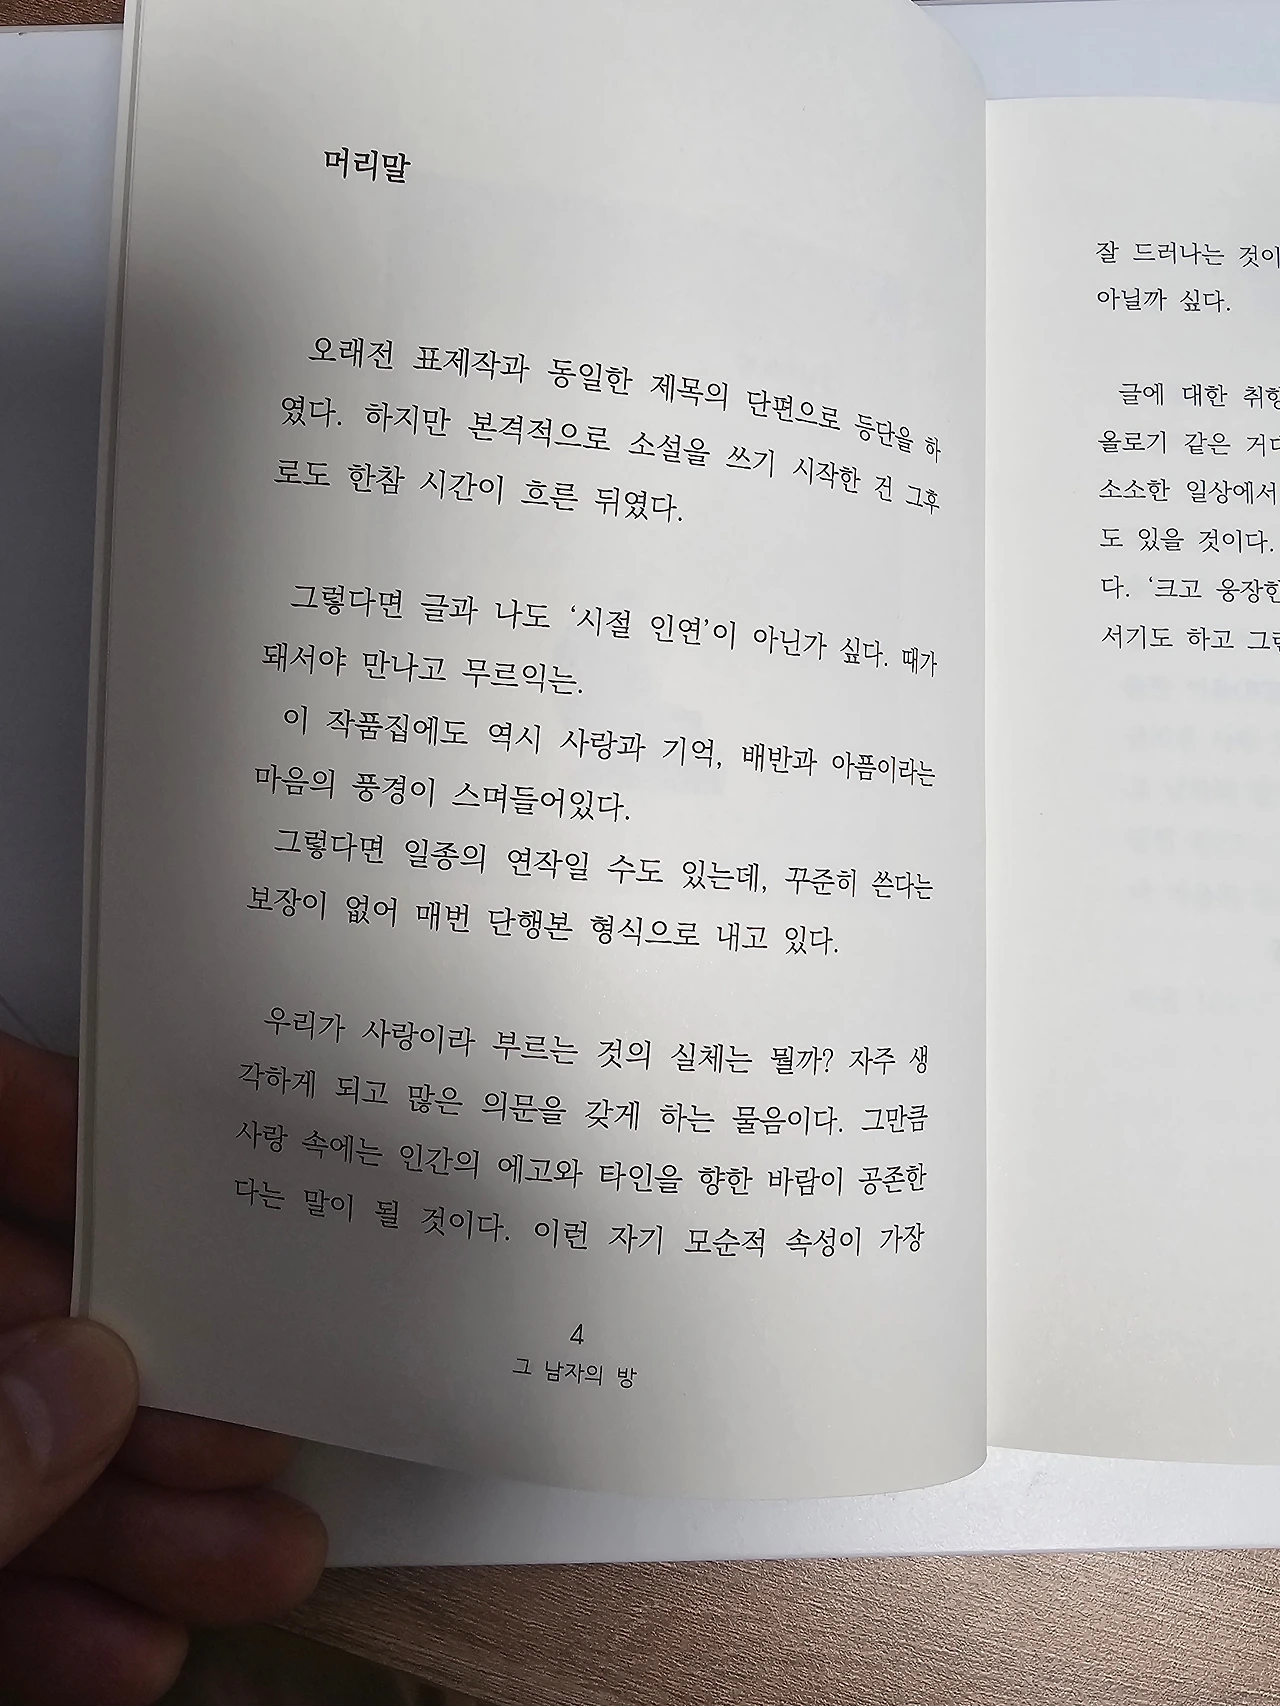 머리말
오래전 표제작과 동일한 제목의 단편으로 등단을 하
였다. 하지만 본격적으로 소설을 쓰기 시작한 건 그후
로도 한참 시간이 흐른 뒤였다.
그렇다면 글과 나도 ‘시절 인연’이 아닌가 싶다. 때가
돼서야 만나고 무르익는.
이 작품집에도 역시 사랑과 기억, 배반과 아픔이라는
마음의 풍경이 스며들어있다.
그렇다면 일종의 연작일 수도 있는데, 꾸준히 쓴다는
보장이 없어 매번 단행본 형식으로 내고 있다.
우리가 사랑이라 부르는 것의 실체는 뭘까? 자주 생
각하게 되고 많은 의문을 갖게 하는 물음이다. 그만큼
사랑 속에는 인간의 에고와 타인을 향한 바람이 공존한
다는 말이 될 것이다. 이런 자기 모순적 속성이 가장
4
그 남자의 방
잘 드러나는 것이
아닐까 싶다.
글에 대한 취향
올로기 같은 거대
소소한 일상에서
도 있을 것이다.
다. ‘크고 웅장한
서기도 하고 그런